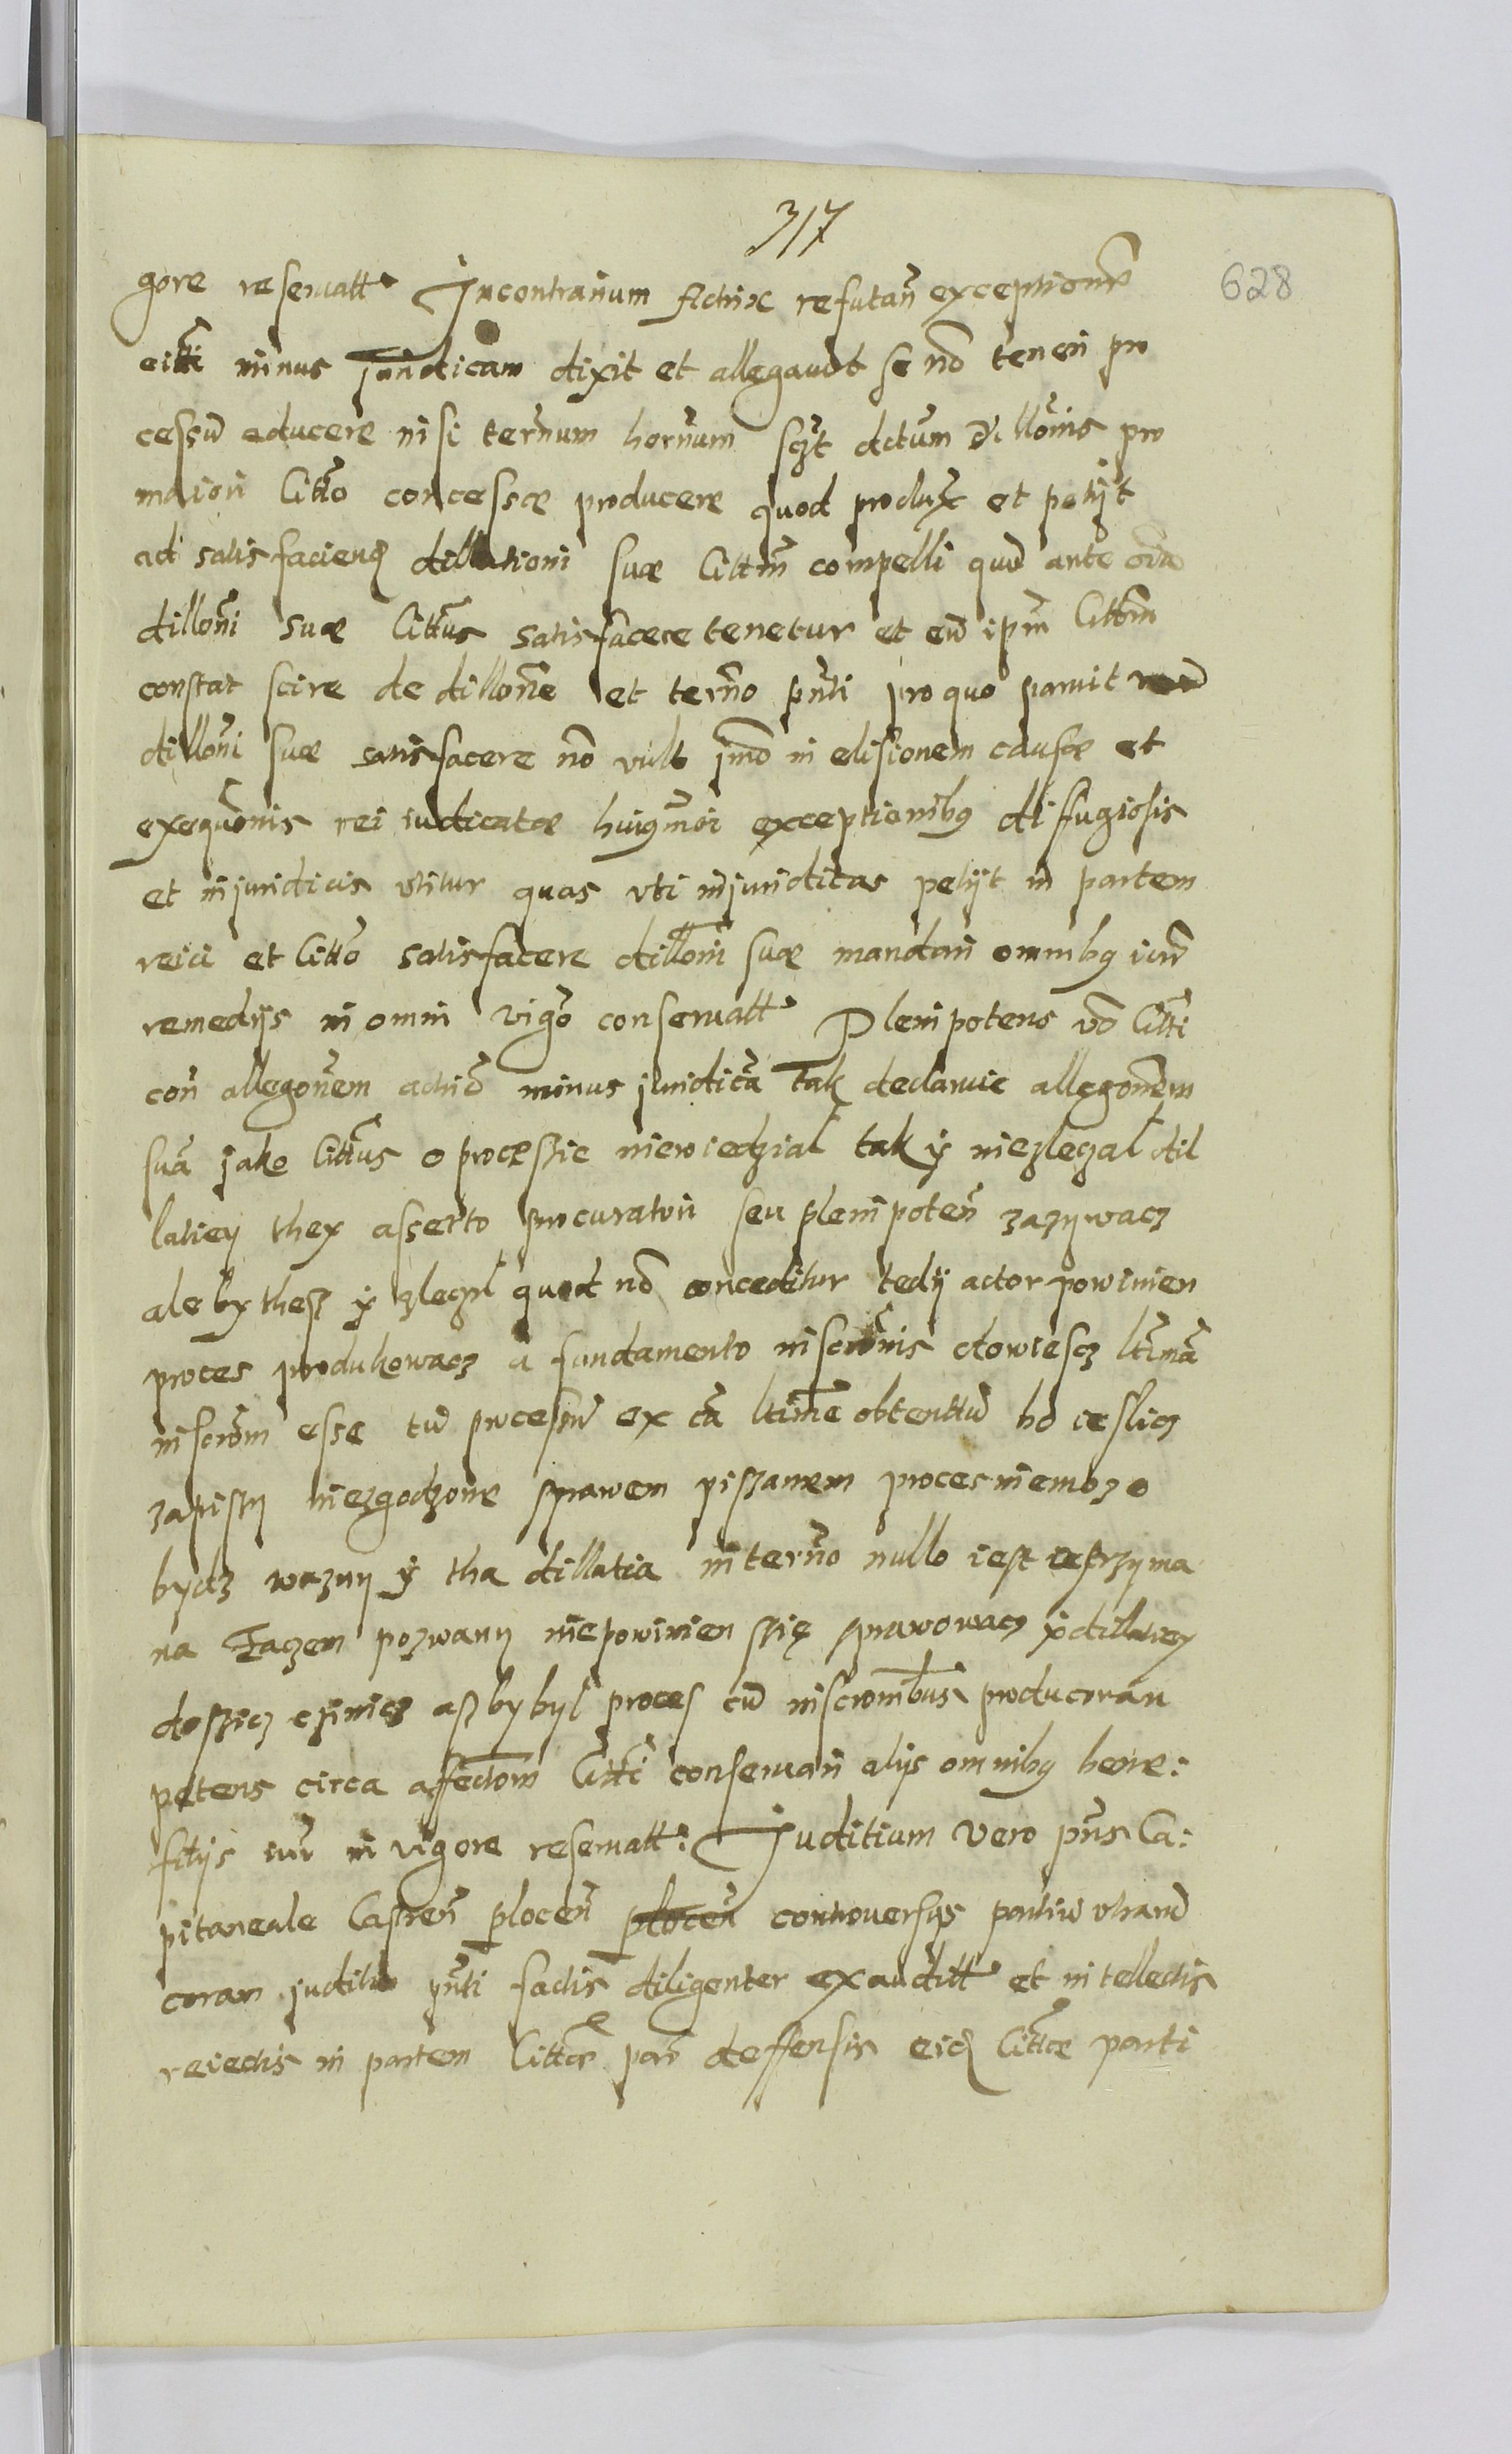 317
628
gore reseruatt Incontrarium Actrix refutan exceptionem
citti minus juridicam dixit et allegauit se no teneri pro
cessu educere nisi ternum hornum sczt actum dillonis pro
maiori Citto concessae producere quod produx et petijt
ad satisfaciend dillationi suae Cittm compelli quod ante oia
dilloni suae Cittus satisfacere tenetur et eu ipm Cittm
constat scire de dillone et terno pnti pro quo paruit
dilloni suae satisfacere no vult imo in elisionem causae et
exequonis rei iudicatae huigmoi exceptionibg diffugiosis
et injuridicis vtitur quas vti injuridicas petijt in partem
reici et Citto satisfacere dilloni suae mandari omnibg iur
remedijs in omni vigo conseruatt Plenipotens vo Citti
con allegonem actricis minus juridica tak declaruie allegonem
sua jako Cittus o processie niewiedzial tak y niezleczal dil
latiey thex asserto procuratori seu plenipoten zazywacz
ale by thesz y zleczyl quod no conceditur tedy actor powinien
proces produkowacz a fundamento inscronis dowiescz ltima
inscrom esse tu processu ex ea ltime obtentu bo ieslicz
zapissy niezgodzone sprawem pisszanem proces niemoze
bydz wazny y tha dillatia in terno nullo iest otrzyma
na Zaczem pozwany niepowinien szię sprawowacz y dillatiey
dossicz czinicz asz by byl proces cu inscronibus producoran
petens circa affectom Citti conseruari alijs omnibg bene:
fitijs iur in vigore reseruatt: Juditium vero pns Ca:
pitaneale Castren plocen plocen controuersijs partiu vtraru
coram juditio pnti factis diligenter exauditt et intellectis
reiectis in partem Cittae par deffensis eid Cittae parti